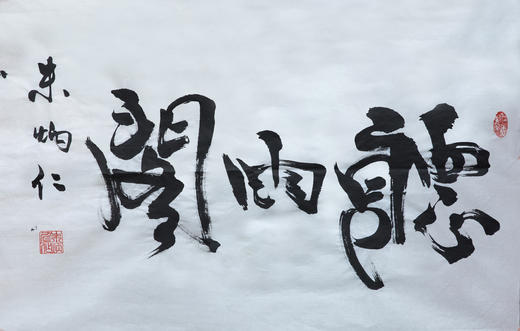 聽雨閣
朱炳仁